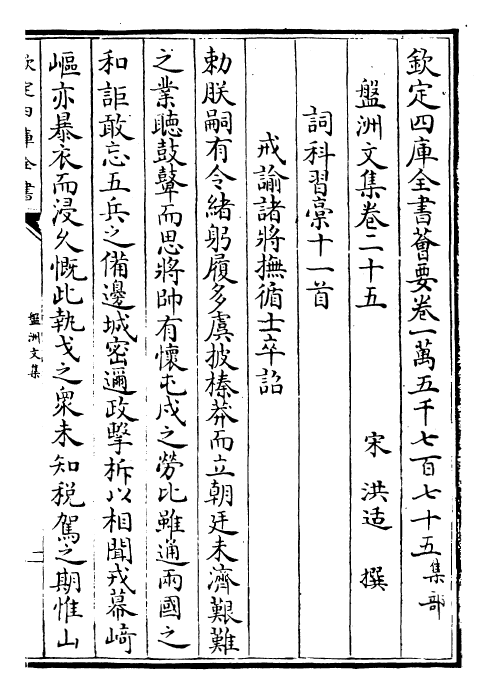 欽定四庫全書薈要卷一萬五千七百七十五集部
盤洲文集卷二十五
宋 洪适 撰
詞科習藁十一首
戒諭諸將撫循士卒詔
勅朕嗣有令緒躬履多虞披榛莽而立朝廷未濟艱難
之業聽鼓鼙而思將帥有懷屯戍之勞比雖通兩國之
和詎敢忘五兵之備邊城密邇政擊柝以相聞戎幕崎
嶇亦暴衣而浸久慨此執戈之衆未知稅駕之期惟山
欽定四庫全書
盤洲文集